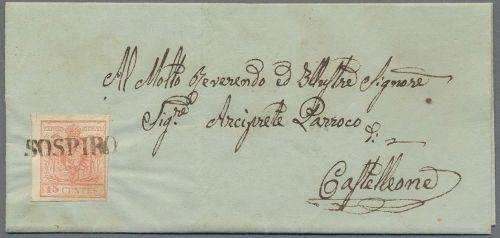 Al Molto Reverendo ed Illustre Signore
Sig.re Arciprete Parroco
di
Castelleone
SOSPIRO
15 CENTES